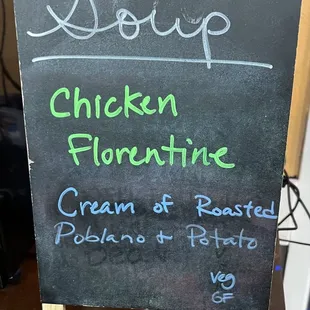 Soup
Chicken
Florentine
Cream of Roasted
Poblano + Potato
Veg
GF